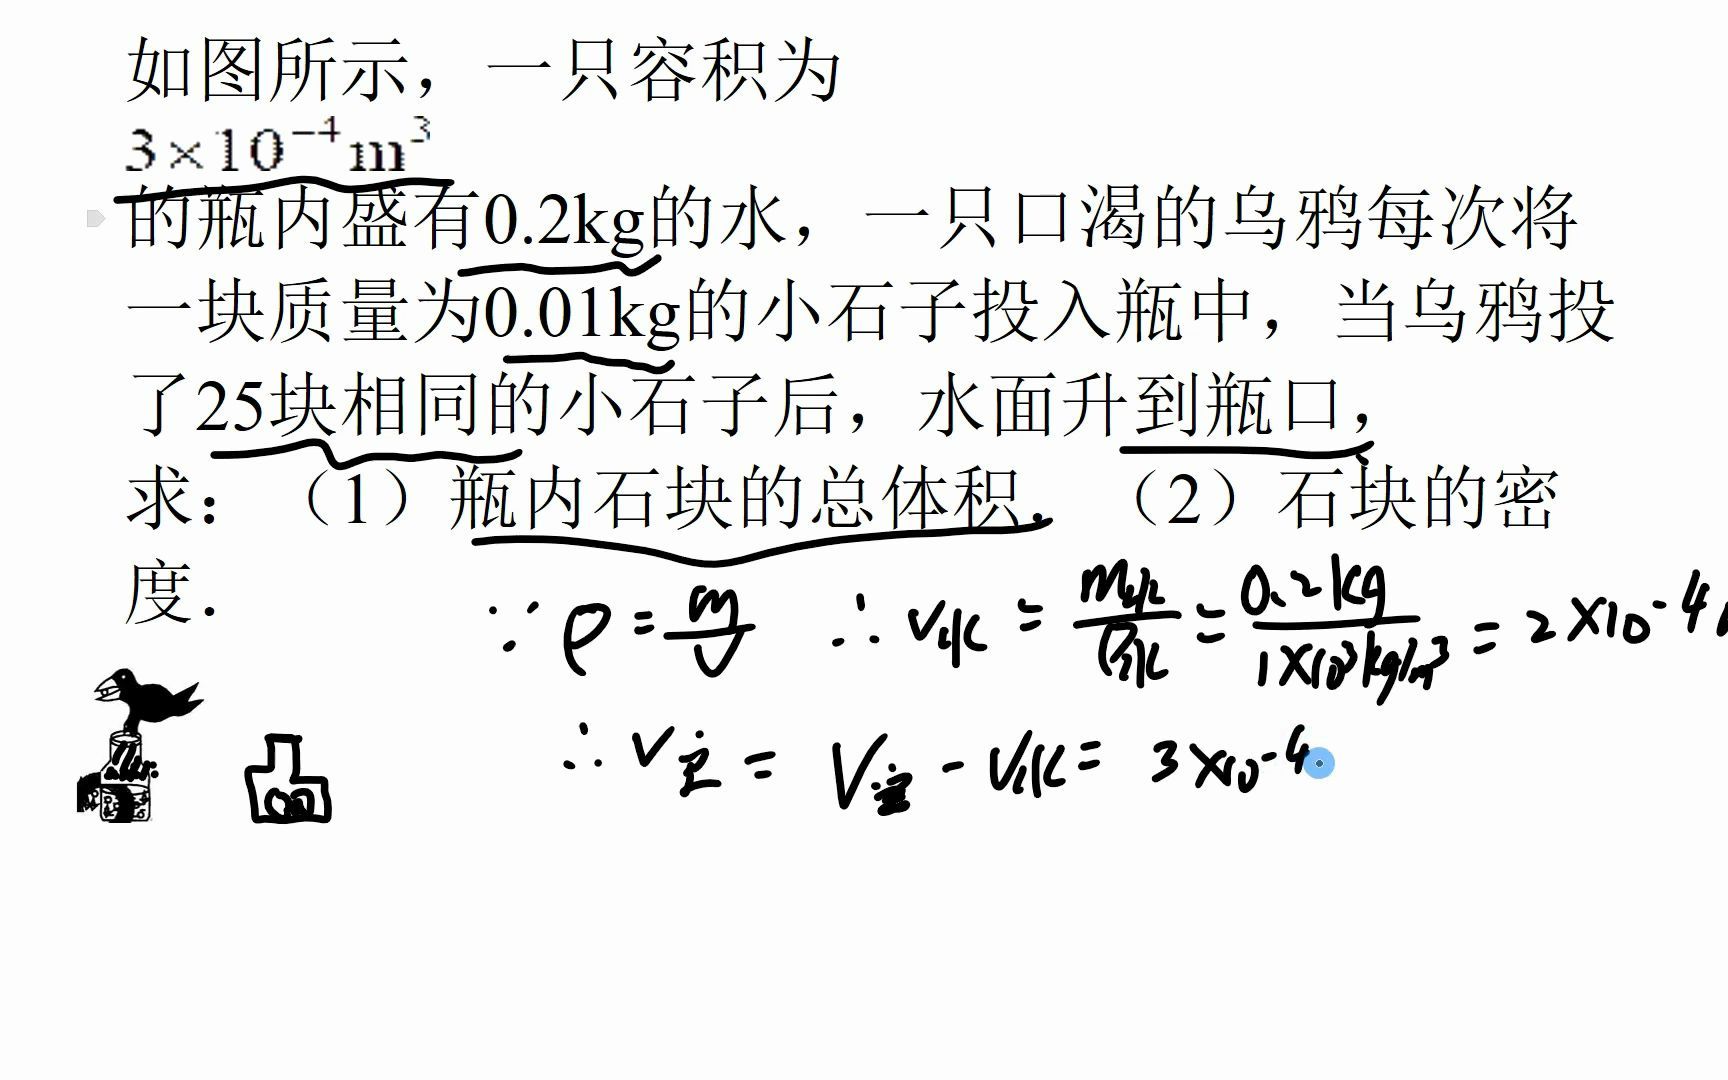 如图所示，一只容积为
3×10⁻⁴m³
的瓶内盛有0.2kg的水，一只口渴的乌鸦每次将
一块质量为0.01kg的小石子投入瓶中，当乌鸦投
了25块相同的小石子后，水面升到瓶口，
求：（1）瓶内石块的总体积．（2）石块的密
度．
∵ ρ = m/V ∴ V水 = m水/ρ水 = 0.2kg/1×10³kg/m³ = 2×10⁻⁴
∴ V = V - V水 = 3×10⁻⁴